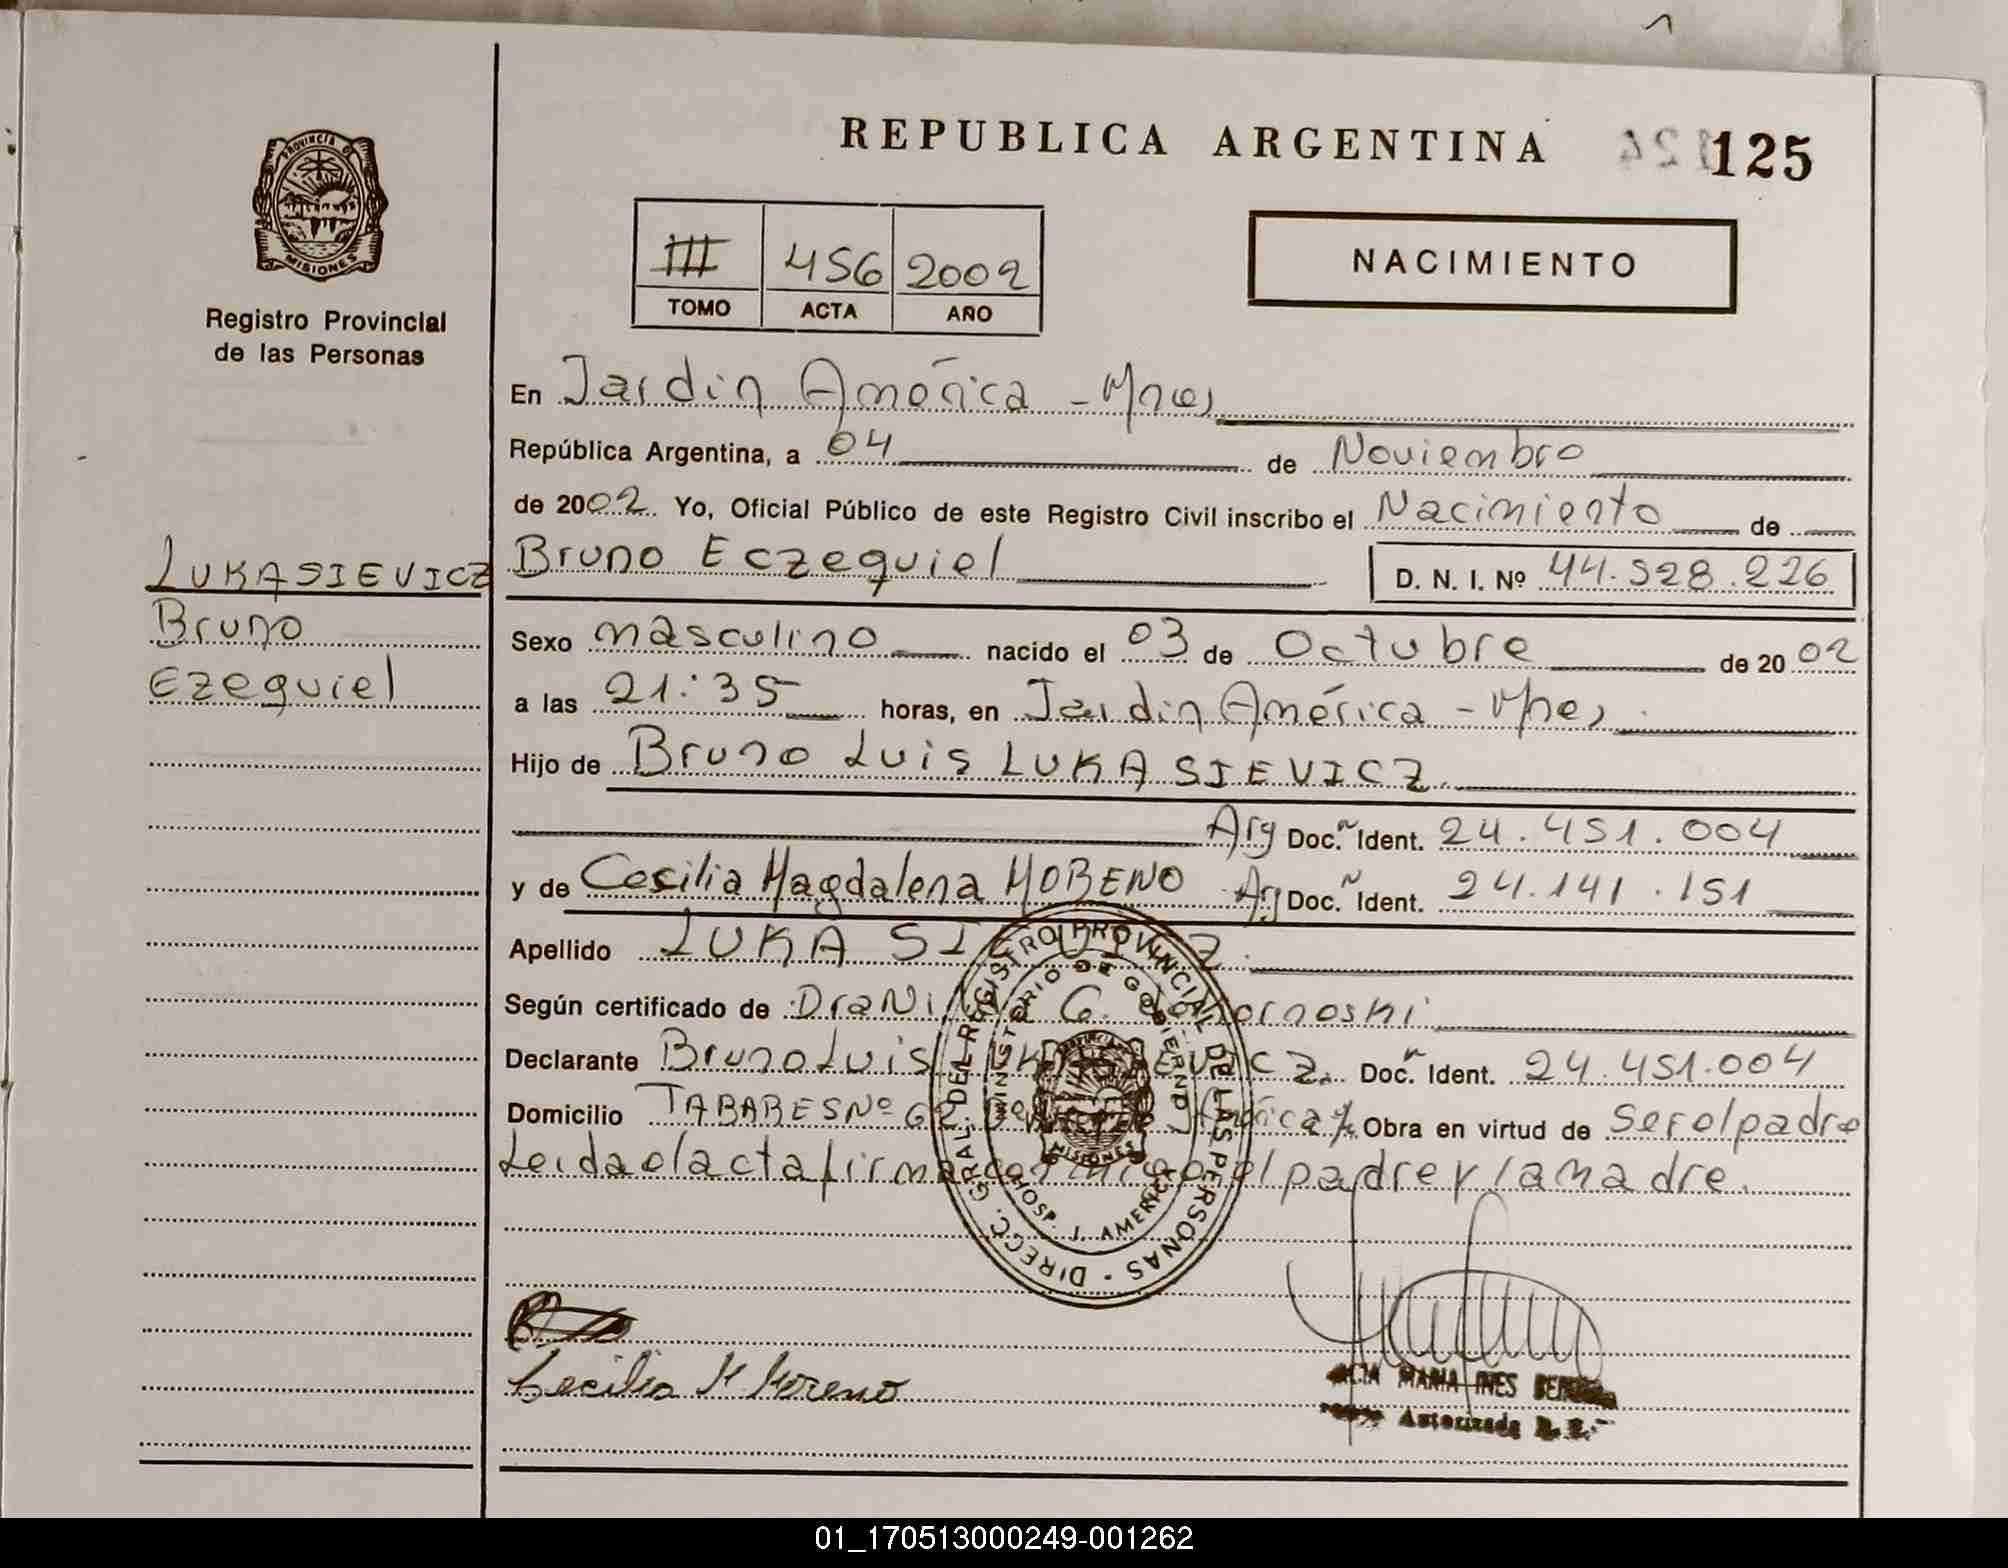 REPUBLICA ARGENTINA 125
PROVINCIA DE
MISIONES
Registro Provincial
de las Personas
III 456 2002
TOMO ACTA AÑO
NACIMIENTO
En Jardin América - Mnes
República Argentina, a 04 de Noviembre
de 2002. Yo, Oficial Público de este Registro Civil inscribo el Nacimiento de
Bruno Eczequiel D. N. I. Nº 44.528.226
LUKASIEVICZ
Bruno
Ezequiel
Sexo masculino nacido el 03 de Octubre de 2002
a las 21:35 horas, en Jardin América - Mnes
Hijo de Bruno Luis LUKASIEVICZ.
Arg Doc. Ident. 24.451.004
y de Cecilia Magdalena MORENO Arg Doc. Ident. 24.141.151
Apellido LUKASIEVICZ.
Según certificado de Dra G.
Declarante Bruno Luis LUKASIEVICZ. Doc. Ident. 24.451.004
Domicilio TABARES Nº 62 América Obra en virtud de ser el padre
Leida el acta firma conmigo el padre y la madre.
DIRECC. GRAL. DEL REGISTRO PROVINCIAL DE LAS PERSONAS
MINISTERIO DE GOBIERNO
HOSP. J. AMERICA
MISIONES
Cecilia M Moreno
MARIA INES
Autorizada
01_170513000249-001262